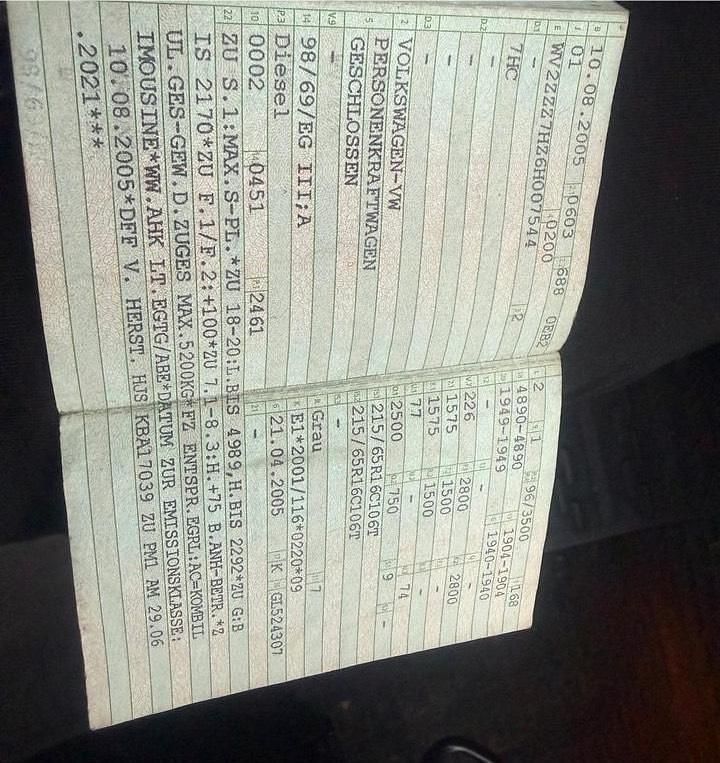 B 10.08.2005 0603 688
J 01 0200
E WV2ZZZ7HZ6H007544
D.1 -
7HC 2
-
D.2 -
-
-
D.3 -
2 VOLKSWAGEN-VW
5 PERSONENKRAFTWAGEN
GESCHLOSSEN
V.9 -
14 98/69/EG III;A
P.3 Diesel
10 0002 0451 P.1 2461
L 2 9 1 96/3500 168
18 4890-4890 1904-1904
1949-1949 1940-1940
- - -
226 2800 2800
1575 1500 -
1575 1500 -
U.1 77 - 74
2500 750 9 -
15.1 215/65R16C106T
15.2 215/65R16C106T
15.3 -
R Grau 7
K E1*2001/116*0220*09
6 21.04.2005 17 K 16 GL524307
21 -
22 ZU S.1:MAX.S-PL.*ZU 18-20:L.BIS 4989,H.BIS 2292*ZU G:B
IS 2170*ZU F.1/F.2:+100*ZU 7.1-8.3:H.+75 B.ANH-BETR.*Z
UL.GES-GEW.D.ZUGES MAX.5200KG*FZ ENTSPR.EGRL:AC=KOMBIL
IMOUSINE*WW.AHK LT.EGTG/ABE*DATUM ZUR EMISSIONSKLASSE:
10.08.2005*DFF V. HERST. HJS KBA17039 ZU PM1 AM 29.06
.2021***